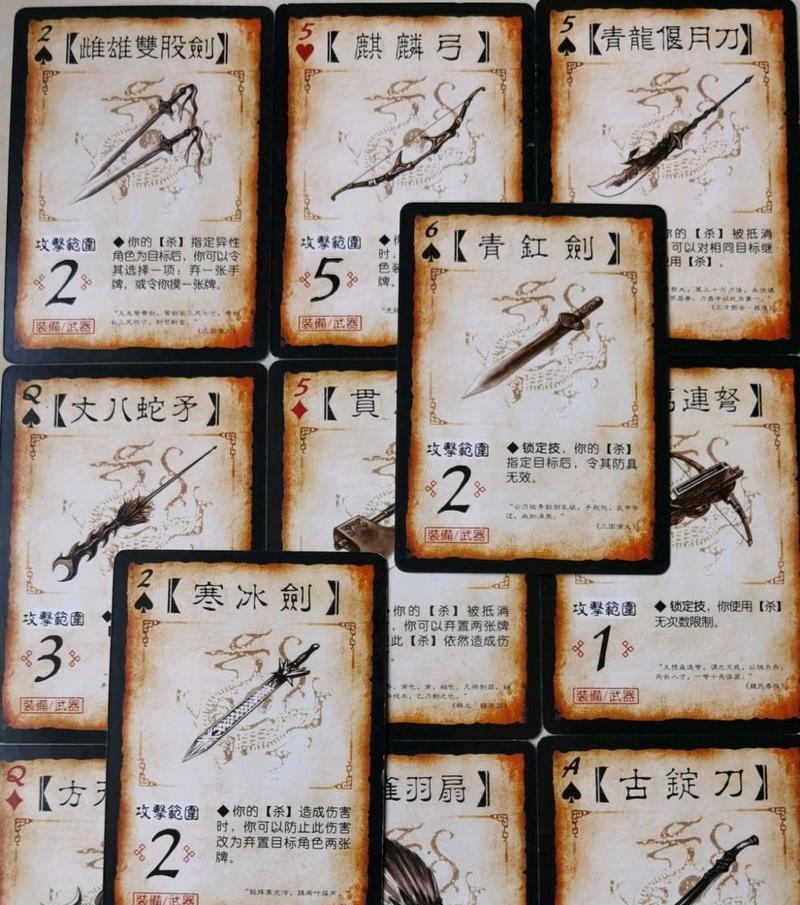 2
【雌雄雙股劍】
攻擊範圍
2
裝備/武器
◆你的【杀】指定异性
角色为目标后，你可以令
其选择一项：弃一张手
牌，或令你摸一张牌。
5
【麒麟弓】
攻擊範圍
5
裝備/武器
时，
牌。
5
【青龍偃月刀】
被抵消
可以对相同目标继
用【杀】。
6
【青釭劍】
攻擊範圍
2
裝備/武器
◆锁定技，你的【杀】
指定目标后，令其防具
无效。
《三国演义》
Q
【丈八蛇矛】
攻擊範圍
3
裝備/武器
5
【貫
你的【杀】被抵消
，你可以弃置两张牌
此【杀】依然造成伤
連弩】
攻擊範圍
1
裝備/武器
◆锁定技，你使用【杀】
无次数限制。
2
【寒冰劍】
攻擊範圍
2
裝備/武器
◆你的【杀】造成伤害
时，你可以防止此伤害
改为弃置目标角色两张
牌。
Q
【方
羽扇】
A
【古錠刀】